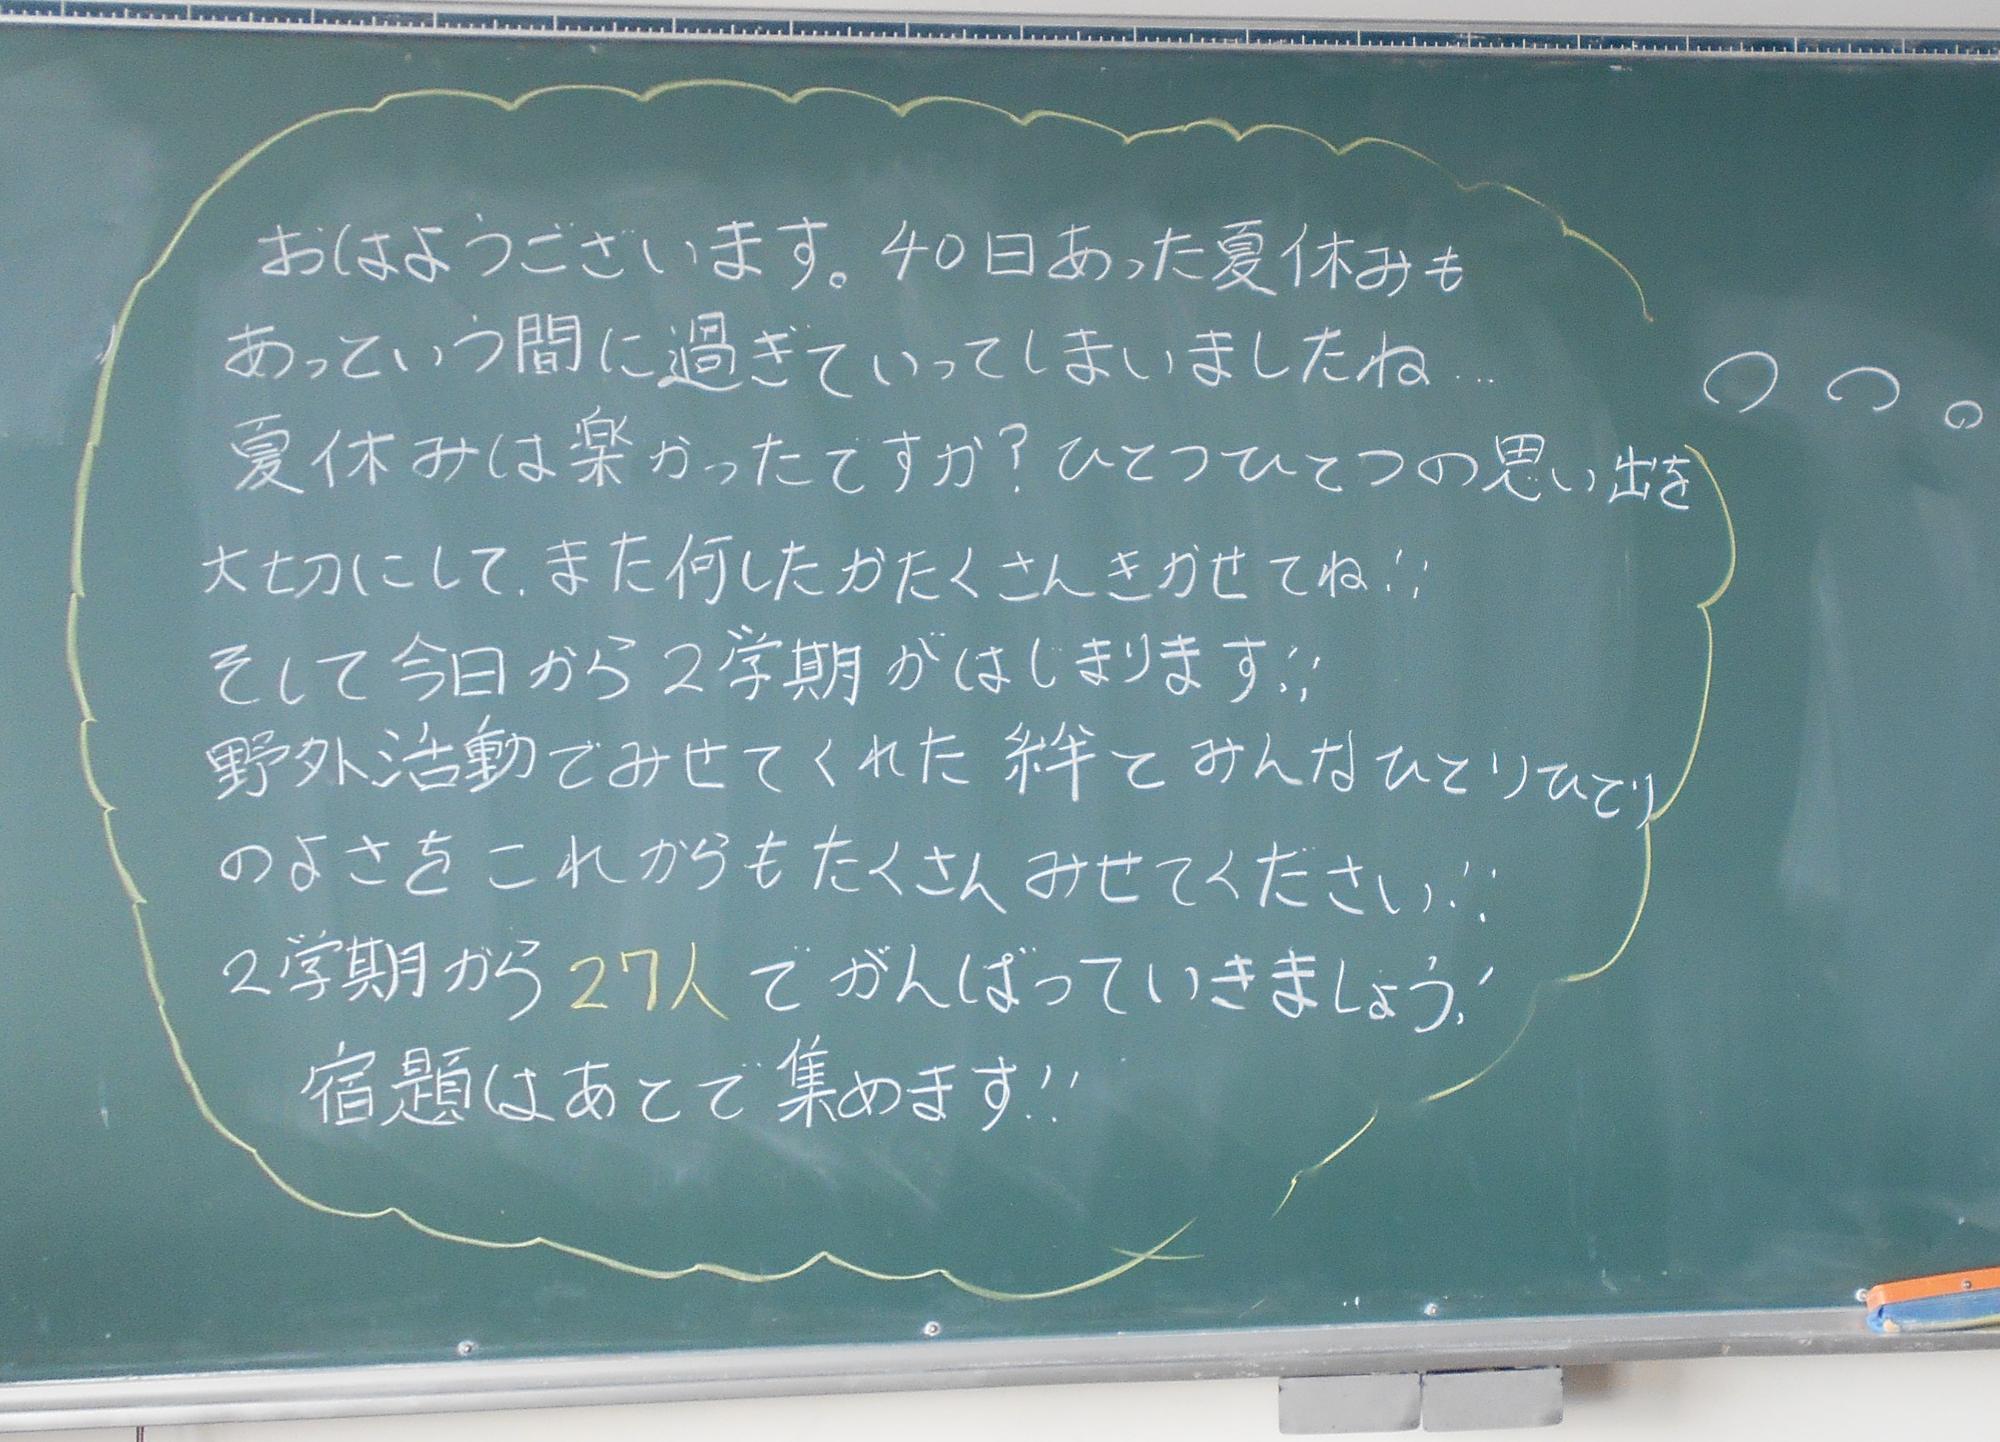 おはようございます。40日あった夏休みも
あっという間に過ぎていってしまいましたね…
夏休みは楽かったですか?ひとつひとつの思い出を
大切にして、また何したかたくさんきかせてね!!
そして今日から2学期がはじまります!!
野外活動でみせてくれた絆とみんなひとりひとり
のよさをこれからもたくさんみせてください!!
2学期から27人でがんばっていきましょう!
宿題はあとで集めます!!